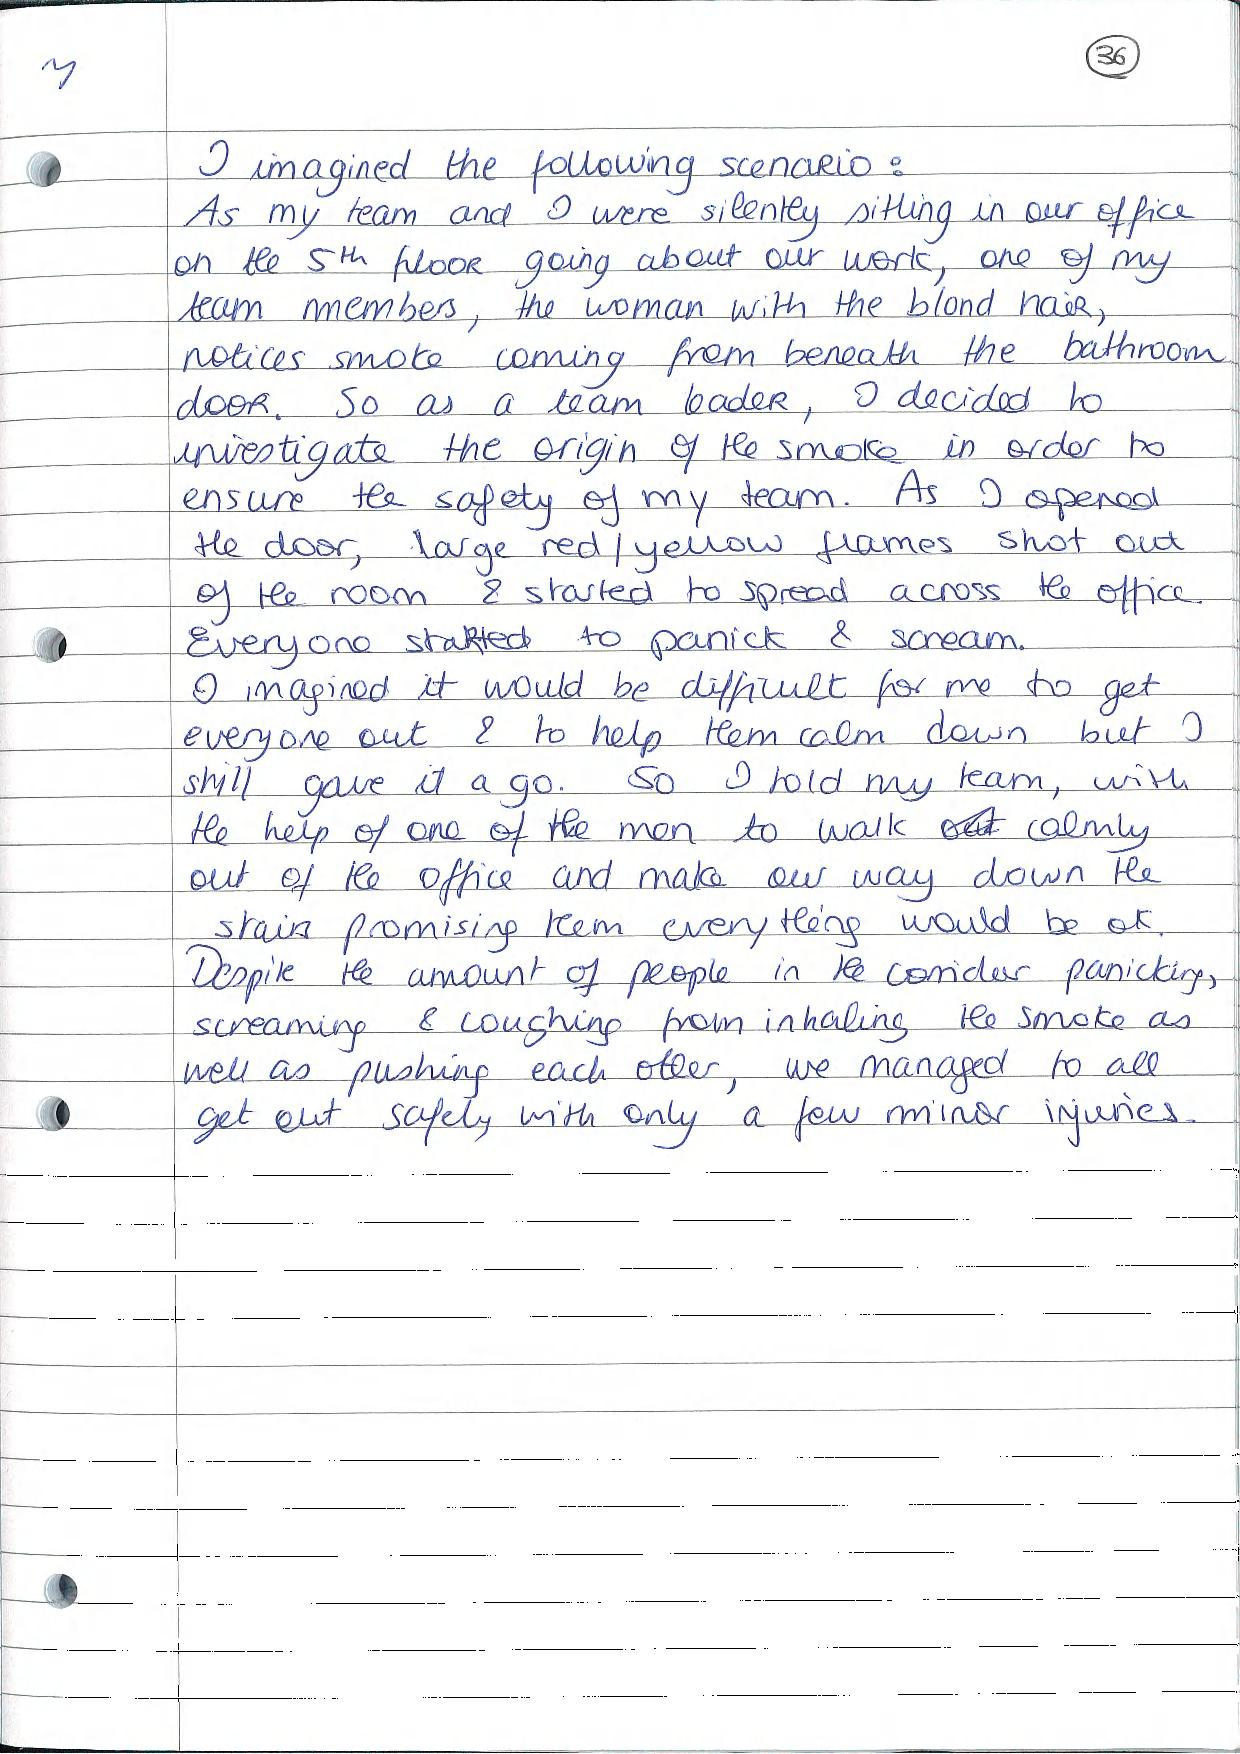 36
I imagined the following scenario:
As my team and I were silently sitting in our office
on the 5th floor going about our work, one of my
team members, the woman with the blond hair,
notices smoke coming from beneath the bathroom
door. So as a team leader, I decided to
investigate the origin of the smoke in order to
ensure the safety of my team. As I opened
the door, large red/yellow flames shot out
of the room & started to spread across the office.
Everyone started to panick & scream.
I imagined it would be difficult for me to get
everyone out & to help them calm down but I
still gave it a go. So I told my team, with
the help of one of the men to walk calmly
out of the office and make our way down the
stairs promising them everything would be ok.
Despite the amount of people in the corridor panicking,
screaming & coughing from inhaling the smoke as
well as pushing each other, we managed to all
get out safely with only a few minor injuries.